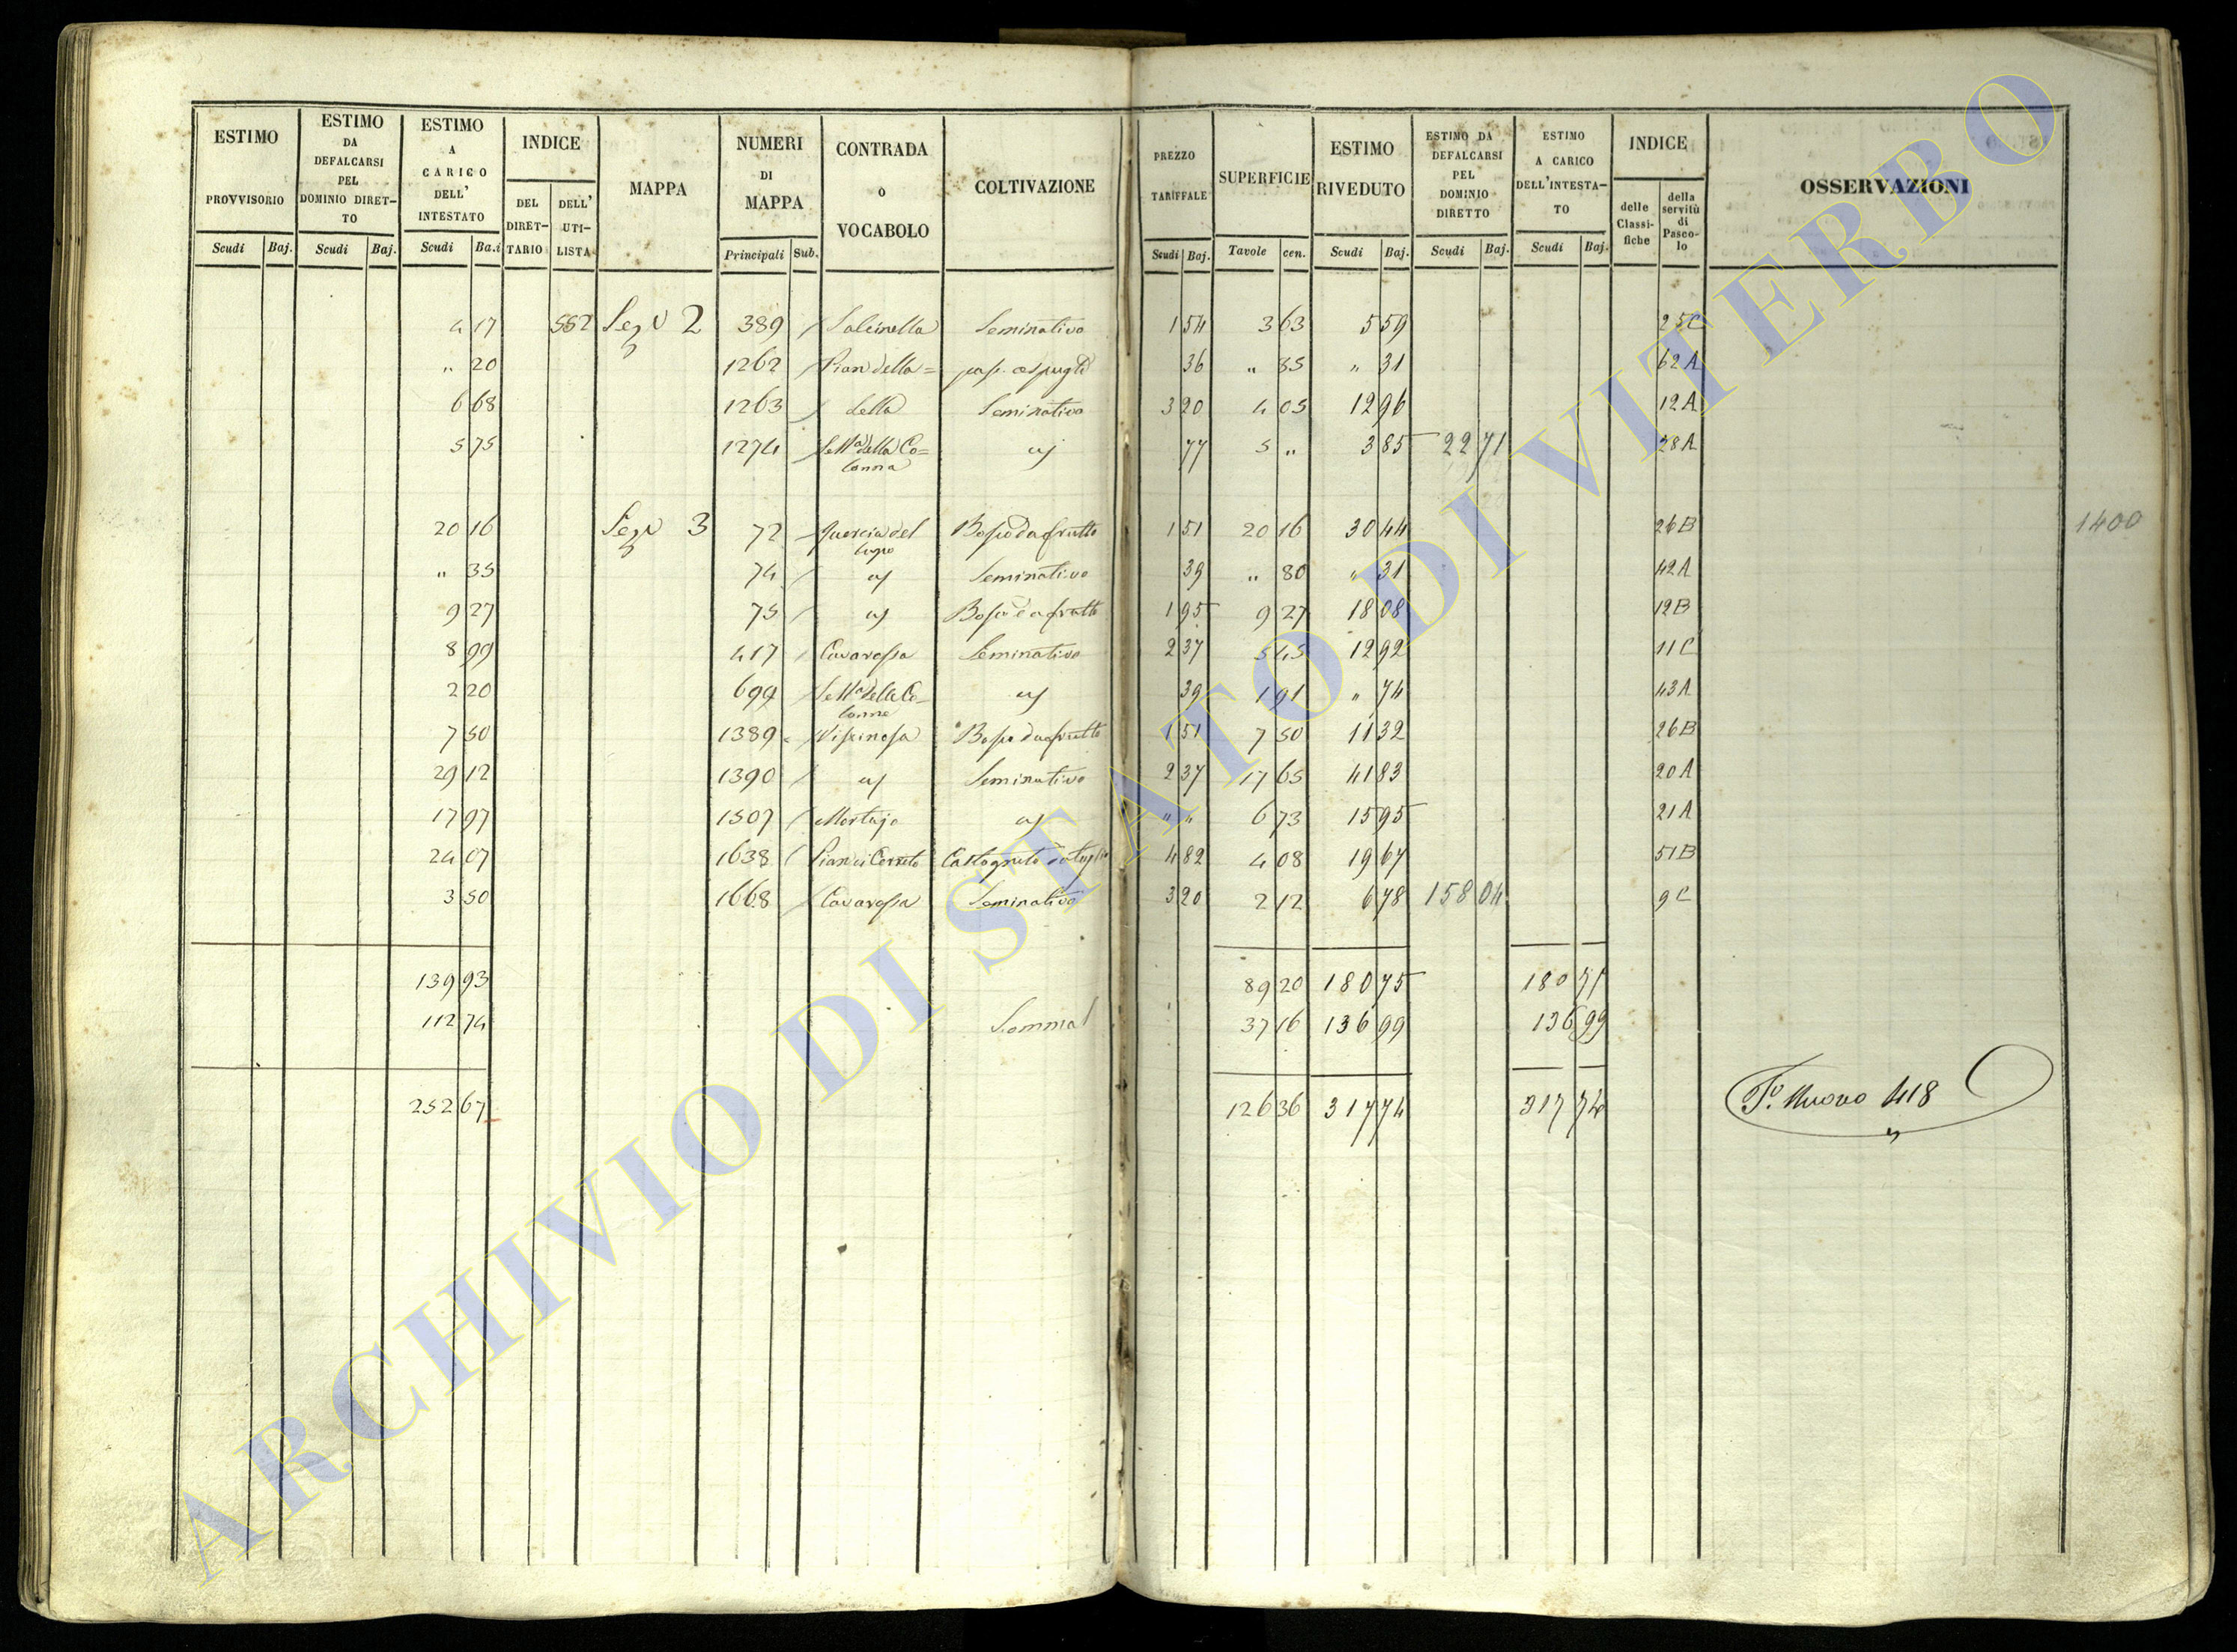 ESTIMO PROVVISORIO
Scudi Baj.
ESTIMO DA DEFALCARSI PEL DOMINIO DIRETTO
Scudi Baj.
ESTIMO A CARICO DELL' INTESTATO
Scudi Ba.i
INDICE
DEL DIRETTARIO
DELL' UTILISTA
MAPPA
NUMERI DI MAPPA
Principali Sub.
CONTRADA O VOCABOLO
COLTIVAZIONE
PREZZO TARIFFALE
Scudi Baj.
SUPERFICIE
Tavole cen.
ESTIMO RIVEDUTO
Scudi Baj.
ESTIMO DA DEFALCARSI PEL DOMINIO DIRETTO
Scudi Baj.
ESTIMO A CARICO DELL'INTESTATO
Scudi Baj.
INDICE
delle Classifiche
della servitù di Pascolo
OSSERVAZIONI
4 17 552 Sez 2 389 Salcinella Seminativo 1 54 3 63 5 59 25C
" 20 1262 Pian della= 36 " 85 " 31 62A
6 68 1263 della Seminativo 3 20 4 05 12 96 12A
5 75 1274 della Co=
lonna 77 5 " 3 85 22 71 28A
20 16 Sez 3 72 Quercia del
lupo Bosco da frutto 1 51 20 16 30 44 26B 1400
" 35 74 Seminativo 39 " 80 " 31 42A
9 27 75 Bosco da frutto 1 95 9 27 18 08 12B
8 99 417 Cavarossa Seminativo 2 37 5 45 12 92 11C
2 20 699 della Co=
lonna 39 1 91 " 74 43A
7 50 1389 Vispinosa Bosco da frutto 1 51 7 50 11 32 26B
29 12 1390 Seminativo 2 37 17 65 41 83 20A
17 97 1507 " " 6 73 15 95 21A
24 07 1638 Pian di Cerreto Castagneto 4 82 4 08 19 67 51B
3 50 1668 Cavarossa Seminativo 3 20 2 12 6 78 158 04 9C
139 93 89 20 180 75 180 75
112 74 Somma 37 16 136 99 136 99
252 67 126 36 317 74 317 74 F.o Nuovo 418
ARCHIVIO DI STATO DI VITERBO